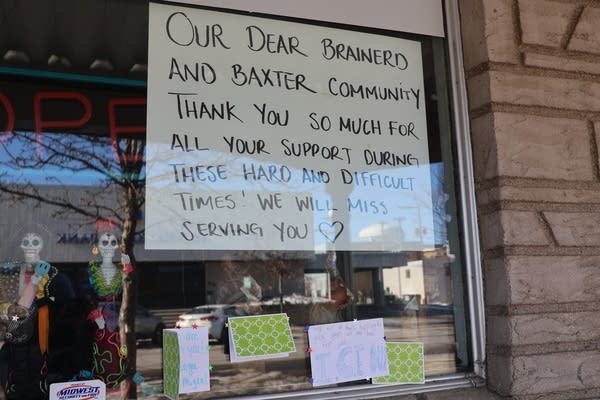 OUR DEAR BRAINERD
AND BAXTER COMMUNITY
THANK YOU SO MUCH FOR
ALL YOUR SUPPORT DURING
THESE HARD AND DIFFICULT
TIMES! WE WILL MISS
SERVING YOU ♡
OPE
MIDWEST